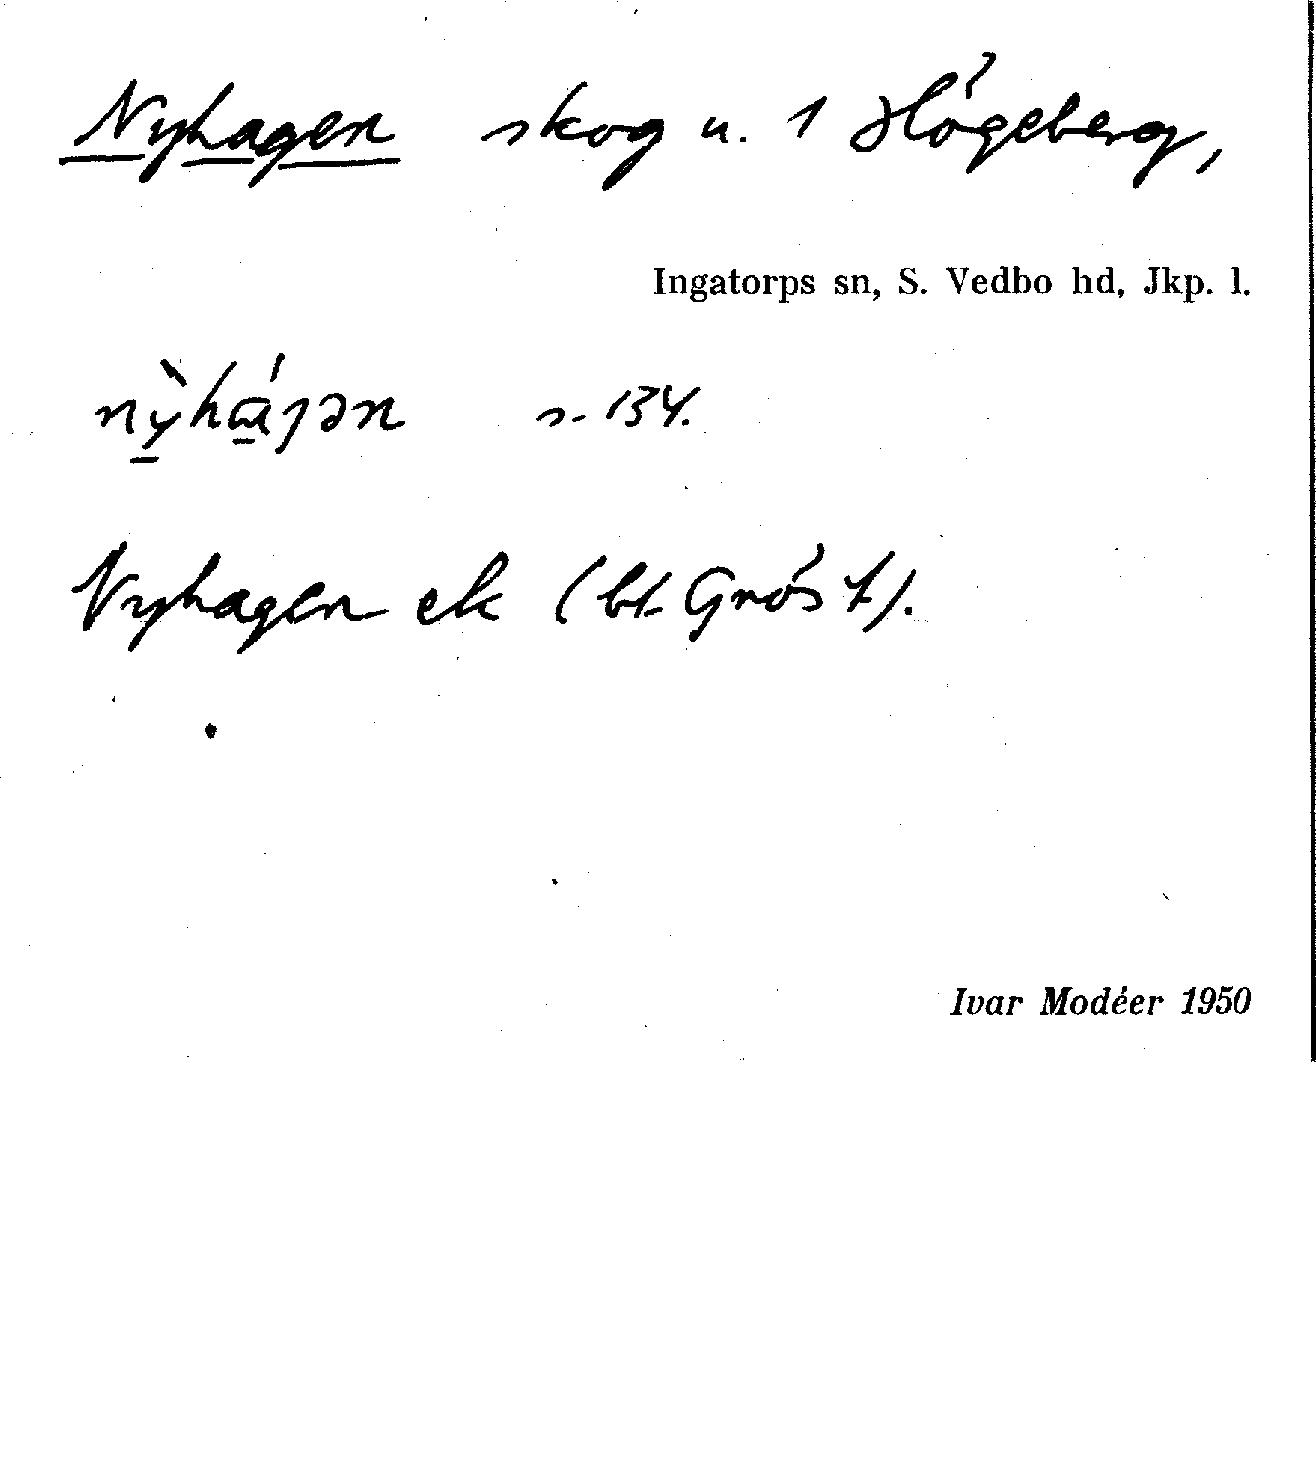 Nyhagen skog u. 1 Högeberg,
Ingatorps sn, S. Vedbo hd, Jkp. l.
s. 134.
Nyhagen ek (bt.
Ivar Modéer 1950